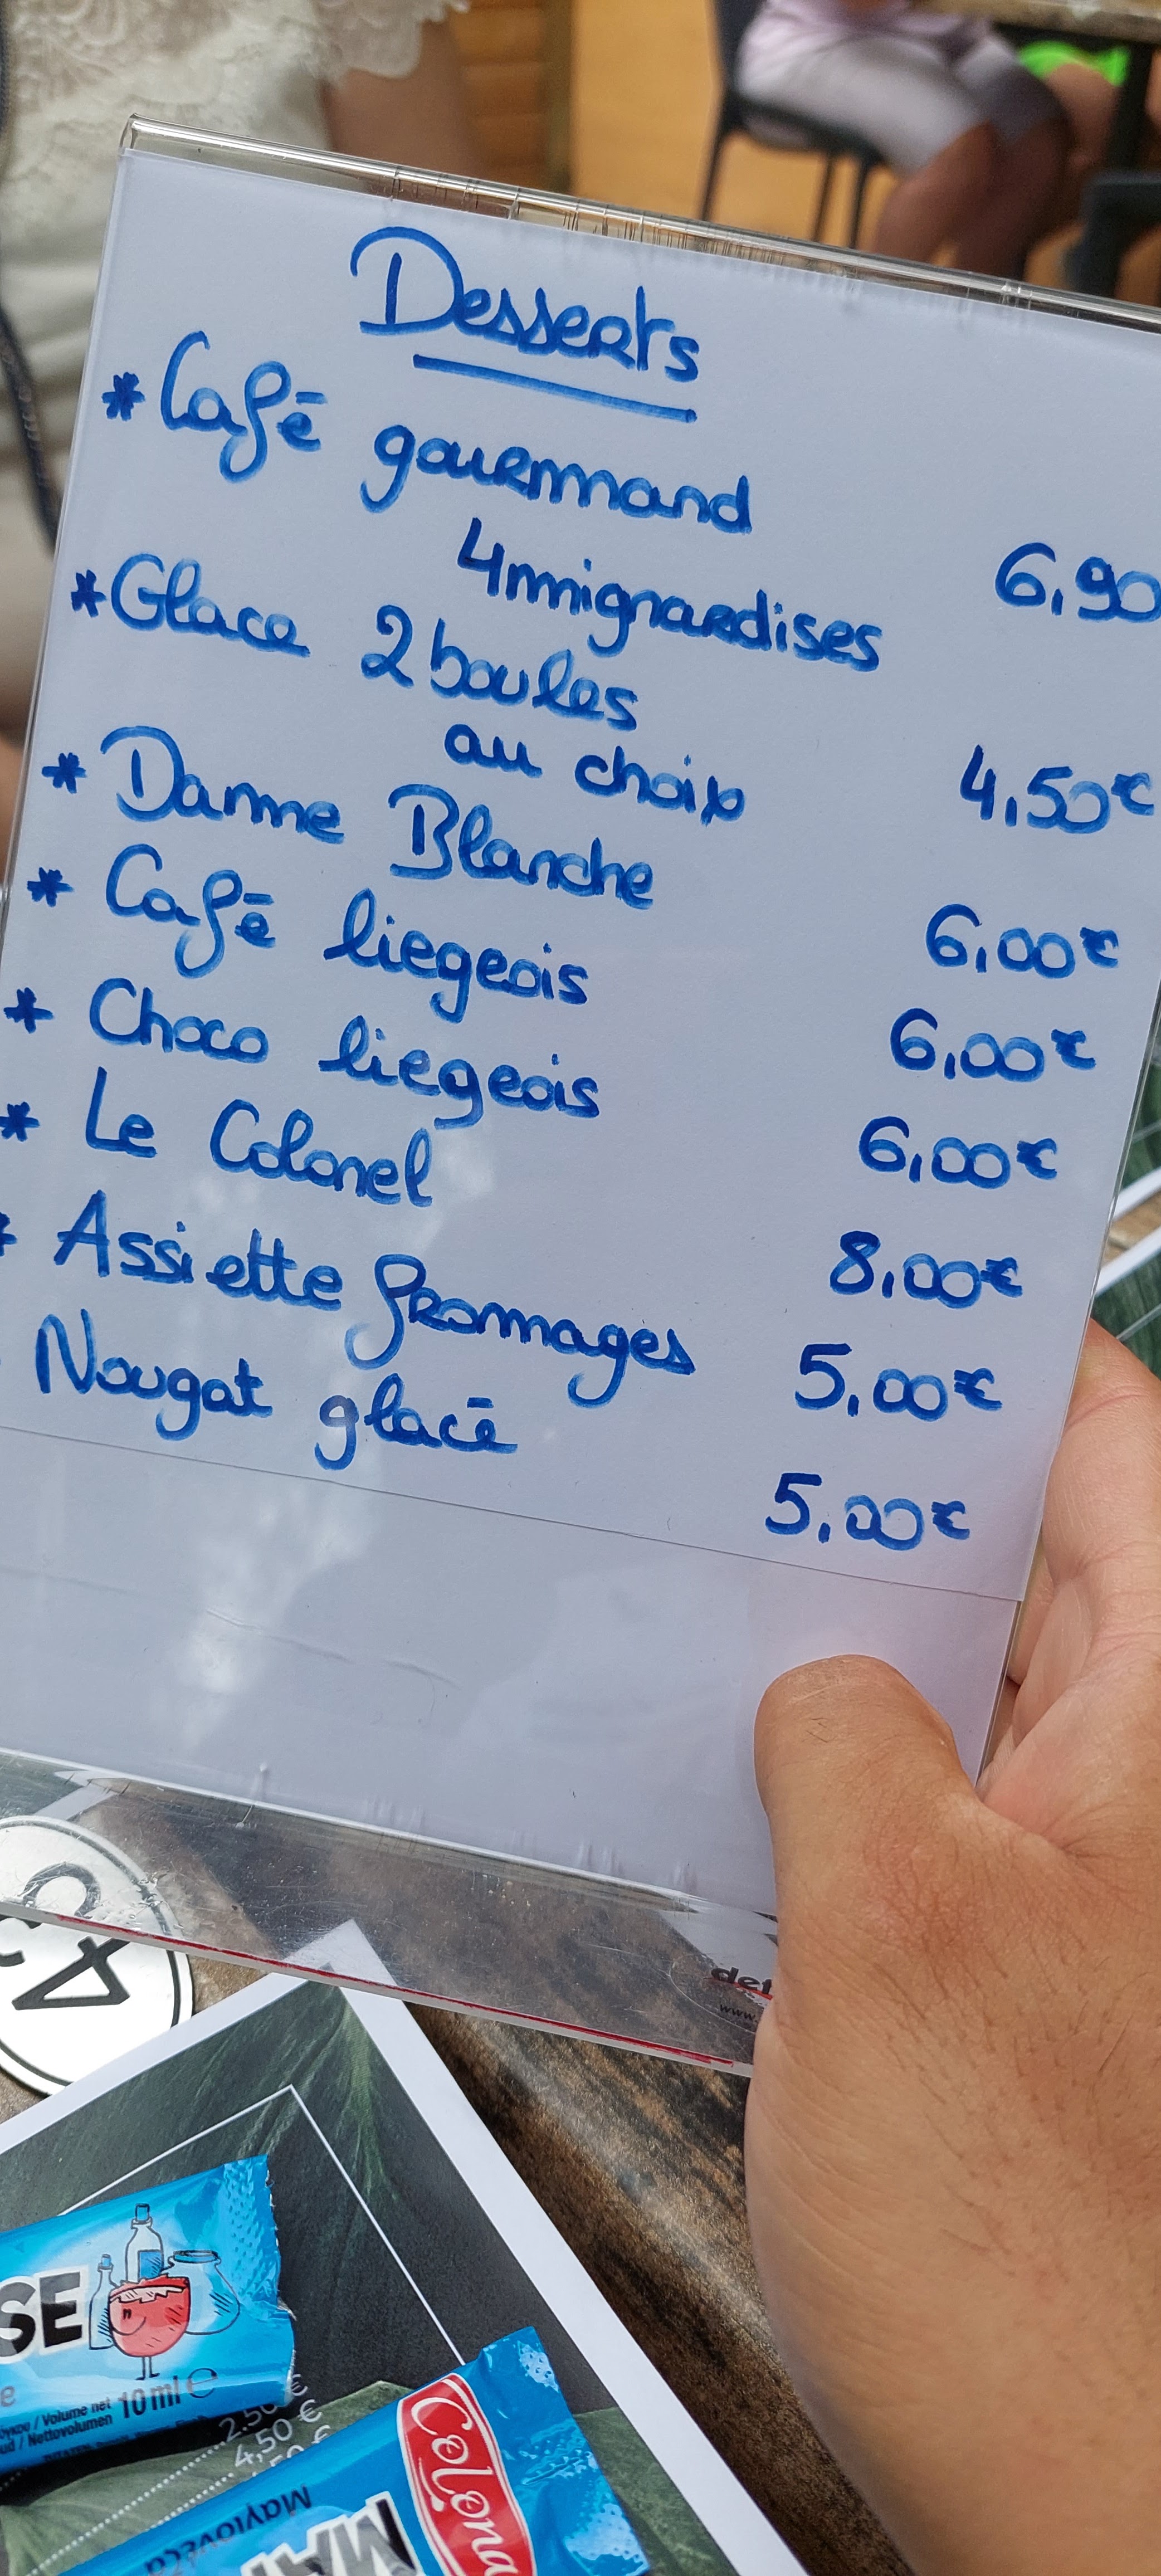 Desserts
* Café gourmand
4 mignardises 6,90
* Glace 2 boules
au choix 4,50€
* Damme Blanche 6,00€
* Café liegeois 6,00€
* Choco liegeois 6,00€
* Le Colonel 8,00€
* Assiette fromages 5,00€
Nougat glacé 5,00€
def
www.
SE
e
10 ml e
/ Volume net
/ Nettovolumen
2,50 €
4,50 €
50 €
Colona
MA